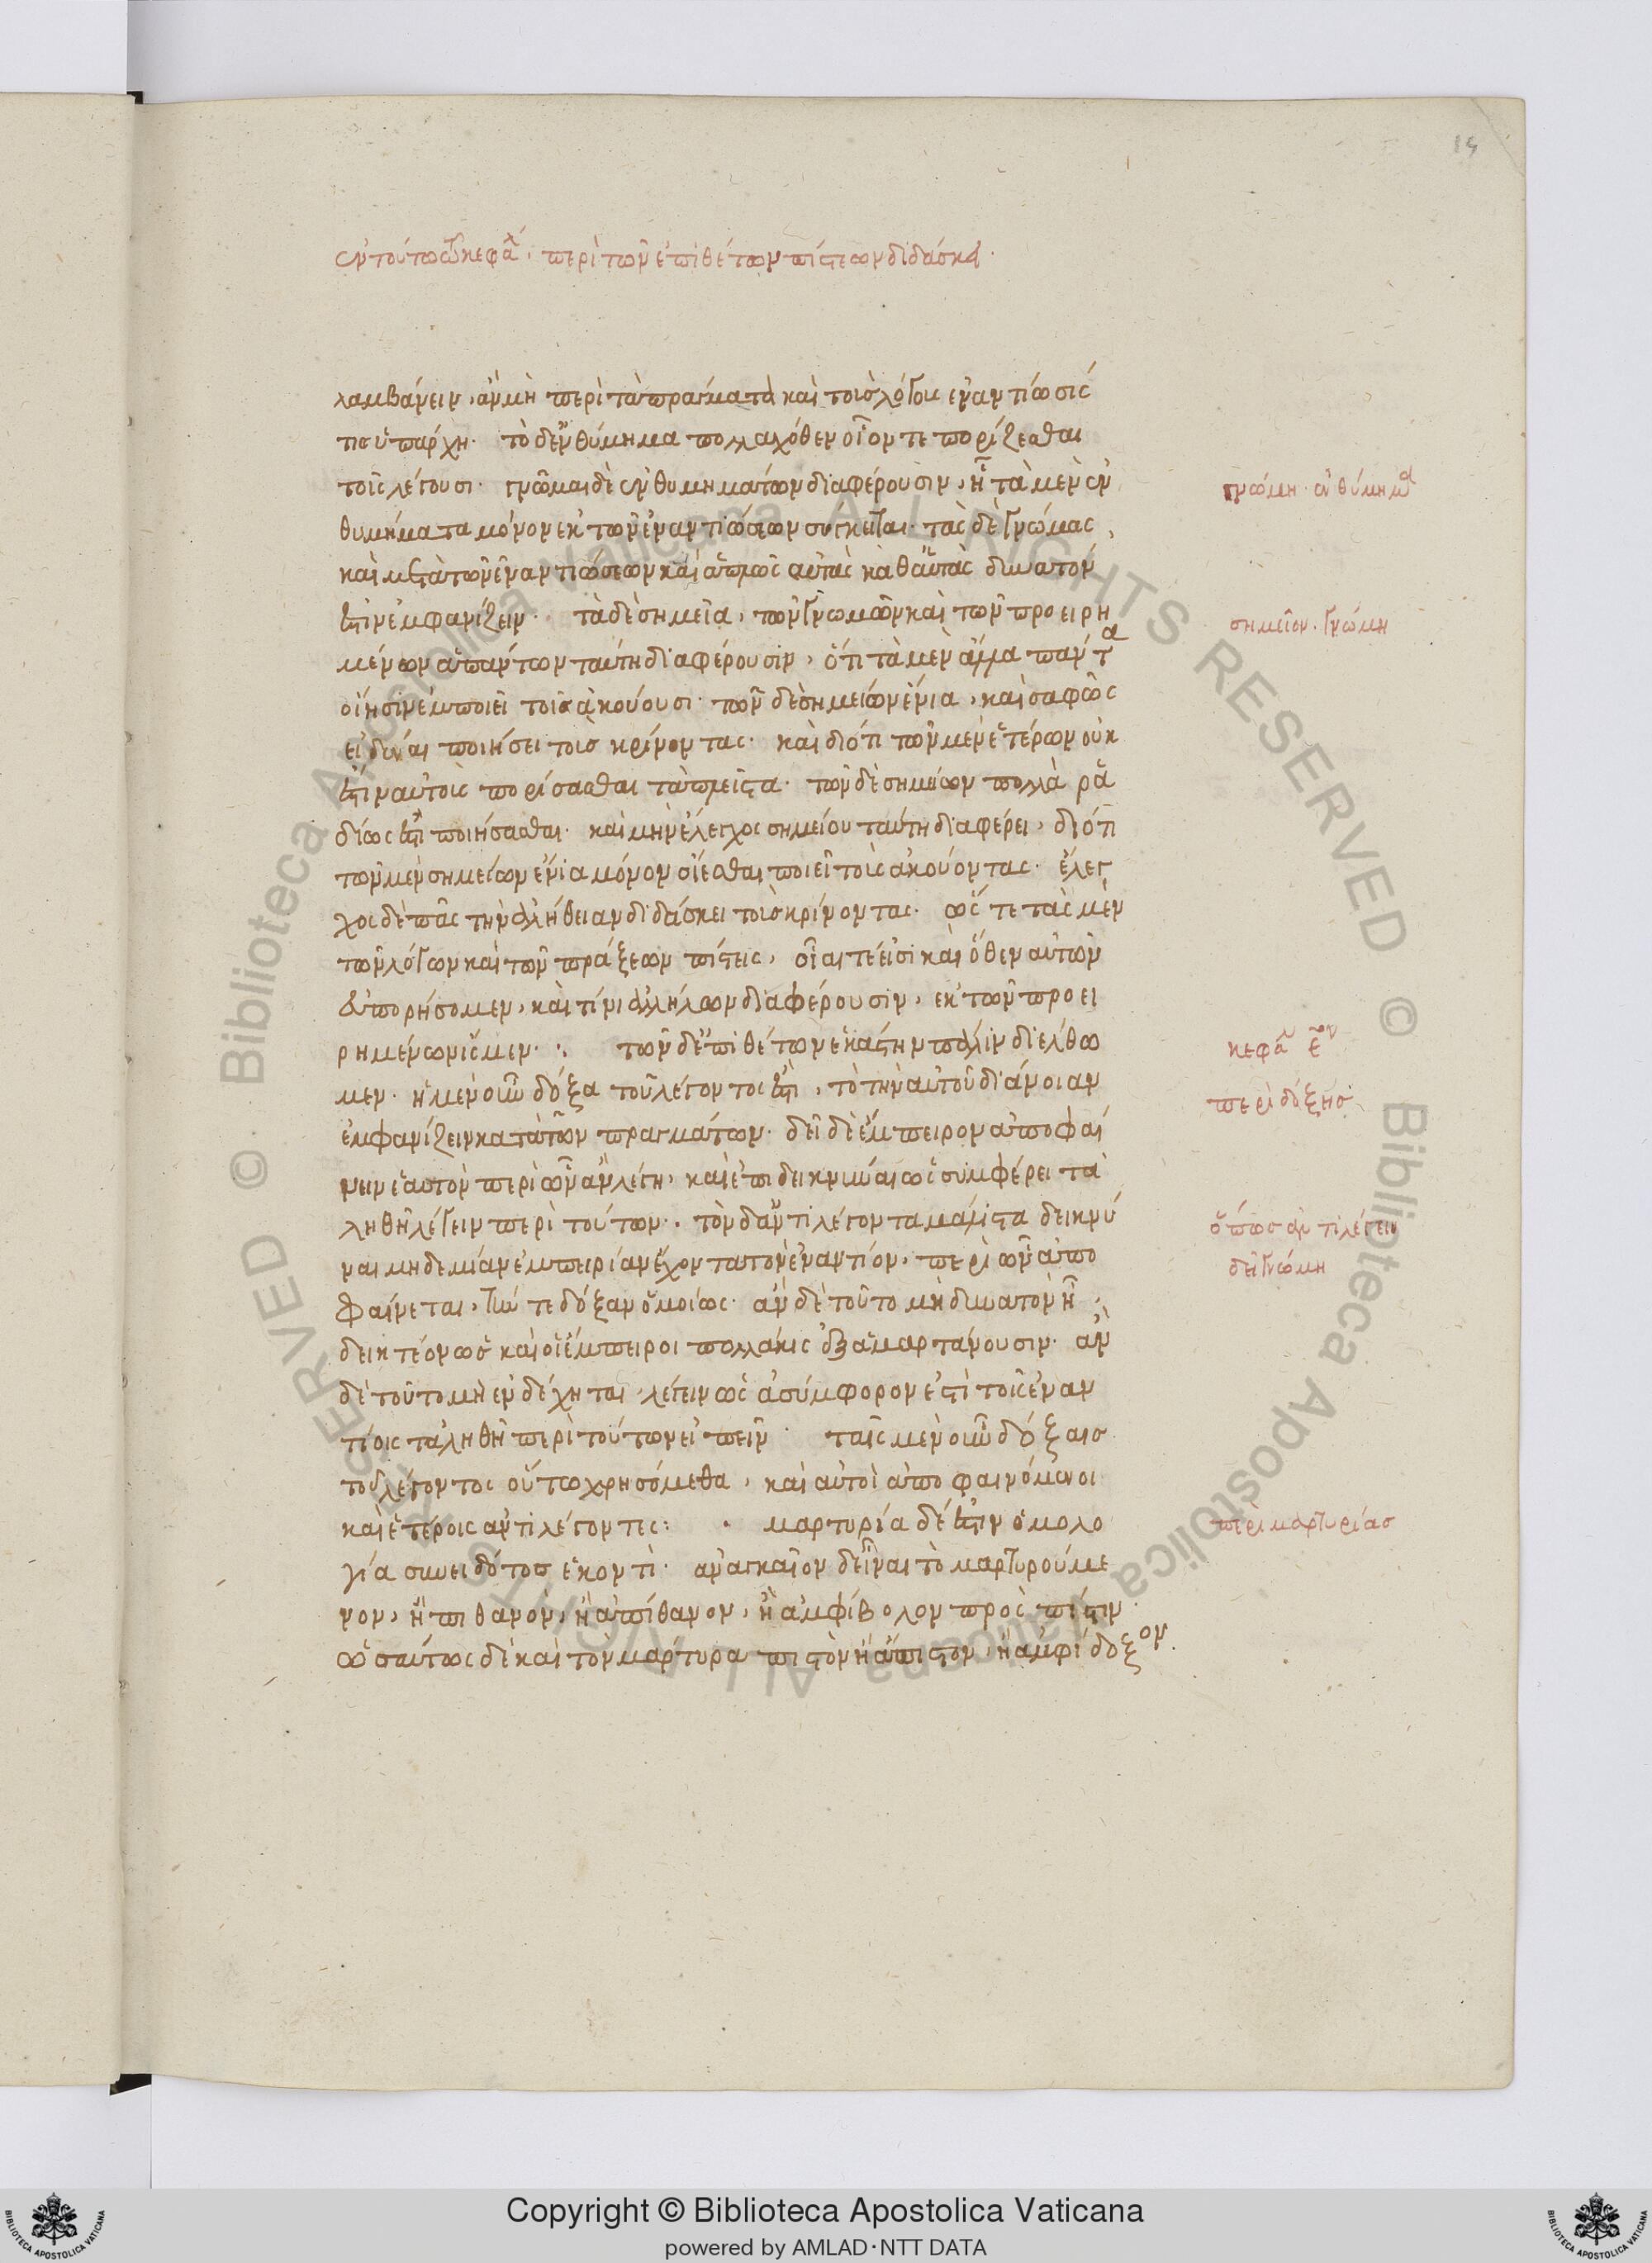 15
ἐν τούτω τῶ κεφαλ, περὶ τῶν ἐπιθέτων πίστεων διδάσκει.
λαμβάνειν, ἂν μὴ περὶ τὰ πράγματα καὶ τοὺς λόγους ἐναντίωσίς
τις ὑπάρχη. τὸ δ' ἐνθύμημα πολλαχόθεν οἷόν τε πορίζεσθαι
τοῖς λέγουσι. γνῶμαι δὲ ἐνθυμημάτων διαφέρουσιν, ἧ τὰ μὲν ἐν
θυμήματα μόνον ἐκ τῶν ἐναντιώσεων σύγκειται. τὰς δὲ γνώμας,
καὶ μετὰ τῶν ἐναντιώσεων καὶ ἁπλῶς αὐτὰς καθ' αὑτὰς δυνατόν
ἐστιν ἐμφανίζειν. τὰ δὲ σημεῖα, τῶν γνωμῶν καὶ τῶν προειρη
μένων ἁπάντων ταύτη διαφέρουσιν, ὅτι τὰ μὲν ἄλλα πάντα
οἴησιν ἐμποιεῖ τοῖς ἀκούουσι. τῶν δὲ σημείων ἔνια, καὶ σαφῶς
εἰδέναι ποιήσει τοὺς κρίνοντας. καὶ διότι τῶν μὲν ἑτέρων οὐκ
ἔστιν αὐτοὺς πορίσασθαι τὰ πλεῖστα. τῶν δὲ σημείων πολλὰ ῥᾳ
δίως ἐστὶ ποιήσασθαι. καὶ μὴν ἔλεγχος σημείου ταύτη διαφέρει, διότι
τῶν μὲν σημείων ἔνια μόνον οἴεσθαι ποιεῖ τοὺς ἀκούοντας. ἔλεγ
χος δὲ πᾶς τὴν ἀλήθειαν διδάσκει τοὺς κρίνοντας. ὥς τε τὰς μὲν
τῶν λόγων καὶ τῶν πράξεων πίστεις, οἷαί τέ εἰσι καὶ ὅθεν αὐτῶν
εὐπορήσομεν, καὶ τίνι ἀλλήλων διαφέρουσιν, ἐκ τῶν προει
ρημένων ἴσμεν. τῶν δ' ἐπιθέτων ἑκάστην πάλιν διέλθω
μεν. ἡ μὲν οὖν δόξα τοῦ λέγοντος ἐστὶ, τὸ τὴν αὑτοῦ διάνοιαν
ἐμφανίζειν κατὰ τῶν πραγμάτων. δεῖ δὲ ἔμπειρον ἀποφαί
νειν ἑαυτὸν περὶ ὧν ἂν λέγη, καὶ ἐπιδεικνύναι ὡς συμφέρει τἀ
ληθῆ λέγειν περὶ τούτων. τὸν δ' ἀντιλέγοντα μάλιστα δεικνύ
ναι μηδεμίαν ἐμπειρίαν ἔχοντα τὸν ἐναντίον, περὶ ὧν ἀπο
φαίνεται, τήν τε δόξαν ὁμοίως. ἂν δὲ τοῦτο μὴ δυνατὸν ἦ,
δεικτέον ὡς καὶ οἱ ἔμπειροι πολλάκις ἐξαμαρτάνουσιν. ἂν
δὲ τοῦτο μὴ ἐνδέχηται, λέγειν ὡς ἀσύμφορον ἐστὶ τοῖς ἐναν
τίοις τἀληθῆ περὶ τούτων εἰπεῖν. ταῖς μὲν οὖν δόξαις
τοῦ λέγοντος οὕτω χρησόμεθα, καὶ αὐτοὶ ἀποφαινόμενοι
καὶ ἑτέροις ἀντιλέγοντες: μαρτυρία δέ ἐστιν ὁμολο
γία συνειδότος ἑκοντὶ. ἀναγκαῖον δ' εἶναι τὸ μαρτυρούμε
νον, ἢ πιθανὸν, ἢ ἀπίθανον, ἢ ἀμφίβολον πρὸς πίστιν.
ὡσαύτως δὲ καὶ τὸν μάρτυρα πιστὸν ἢ ἄπιστον, ἢ ἀμφίδοξον.
γνώμη. ἐνθύμημα
σημεῖον. γνώμη
κεφα εον
περὶ δόξης
ὅπως ἀντιλέγειν
δεῖ γνώμη
περὶ μαρτυρίας
Copyright © Biblioteca Apostolica Vaticana
powered by AMLAD·NTT DATA
© Biblioteca Apostolica Vaticana ALL RIGHTS RESERVED
© Biblioteca Apostolica Vaticana ALL RIGHTS RESERVED
BIBLIOTECA APOSTOLICA VATICANA
BIBLIOTECA APOSTOLICA VATICANA